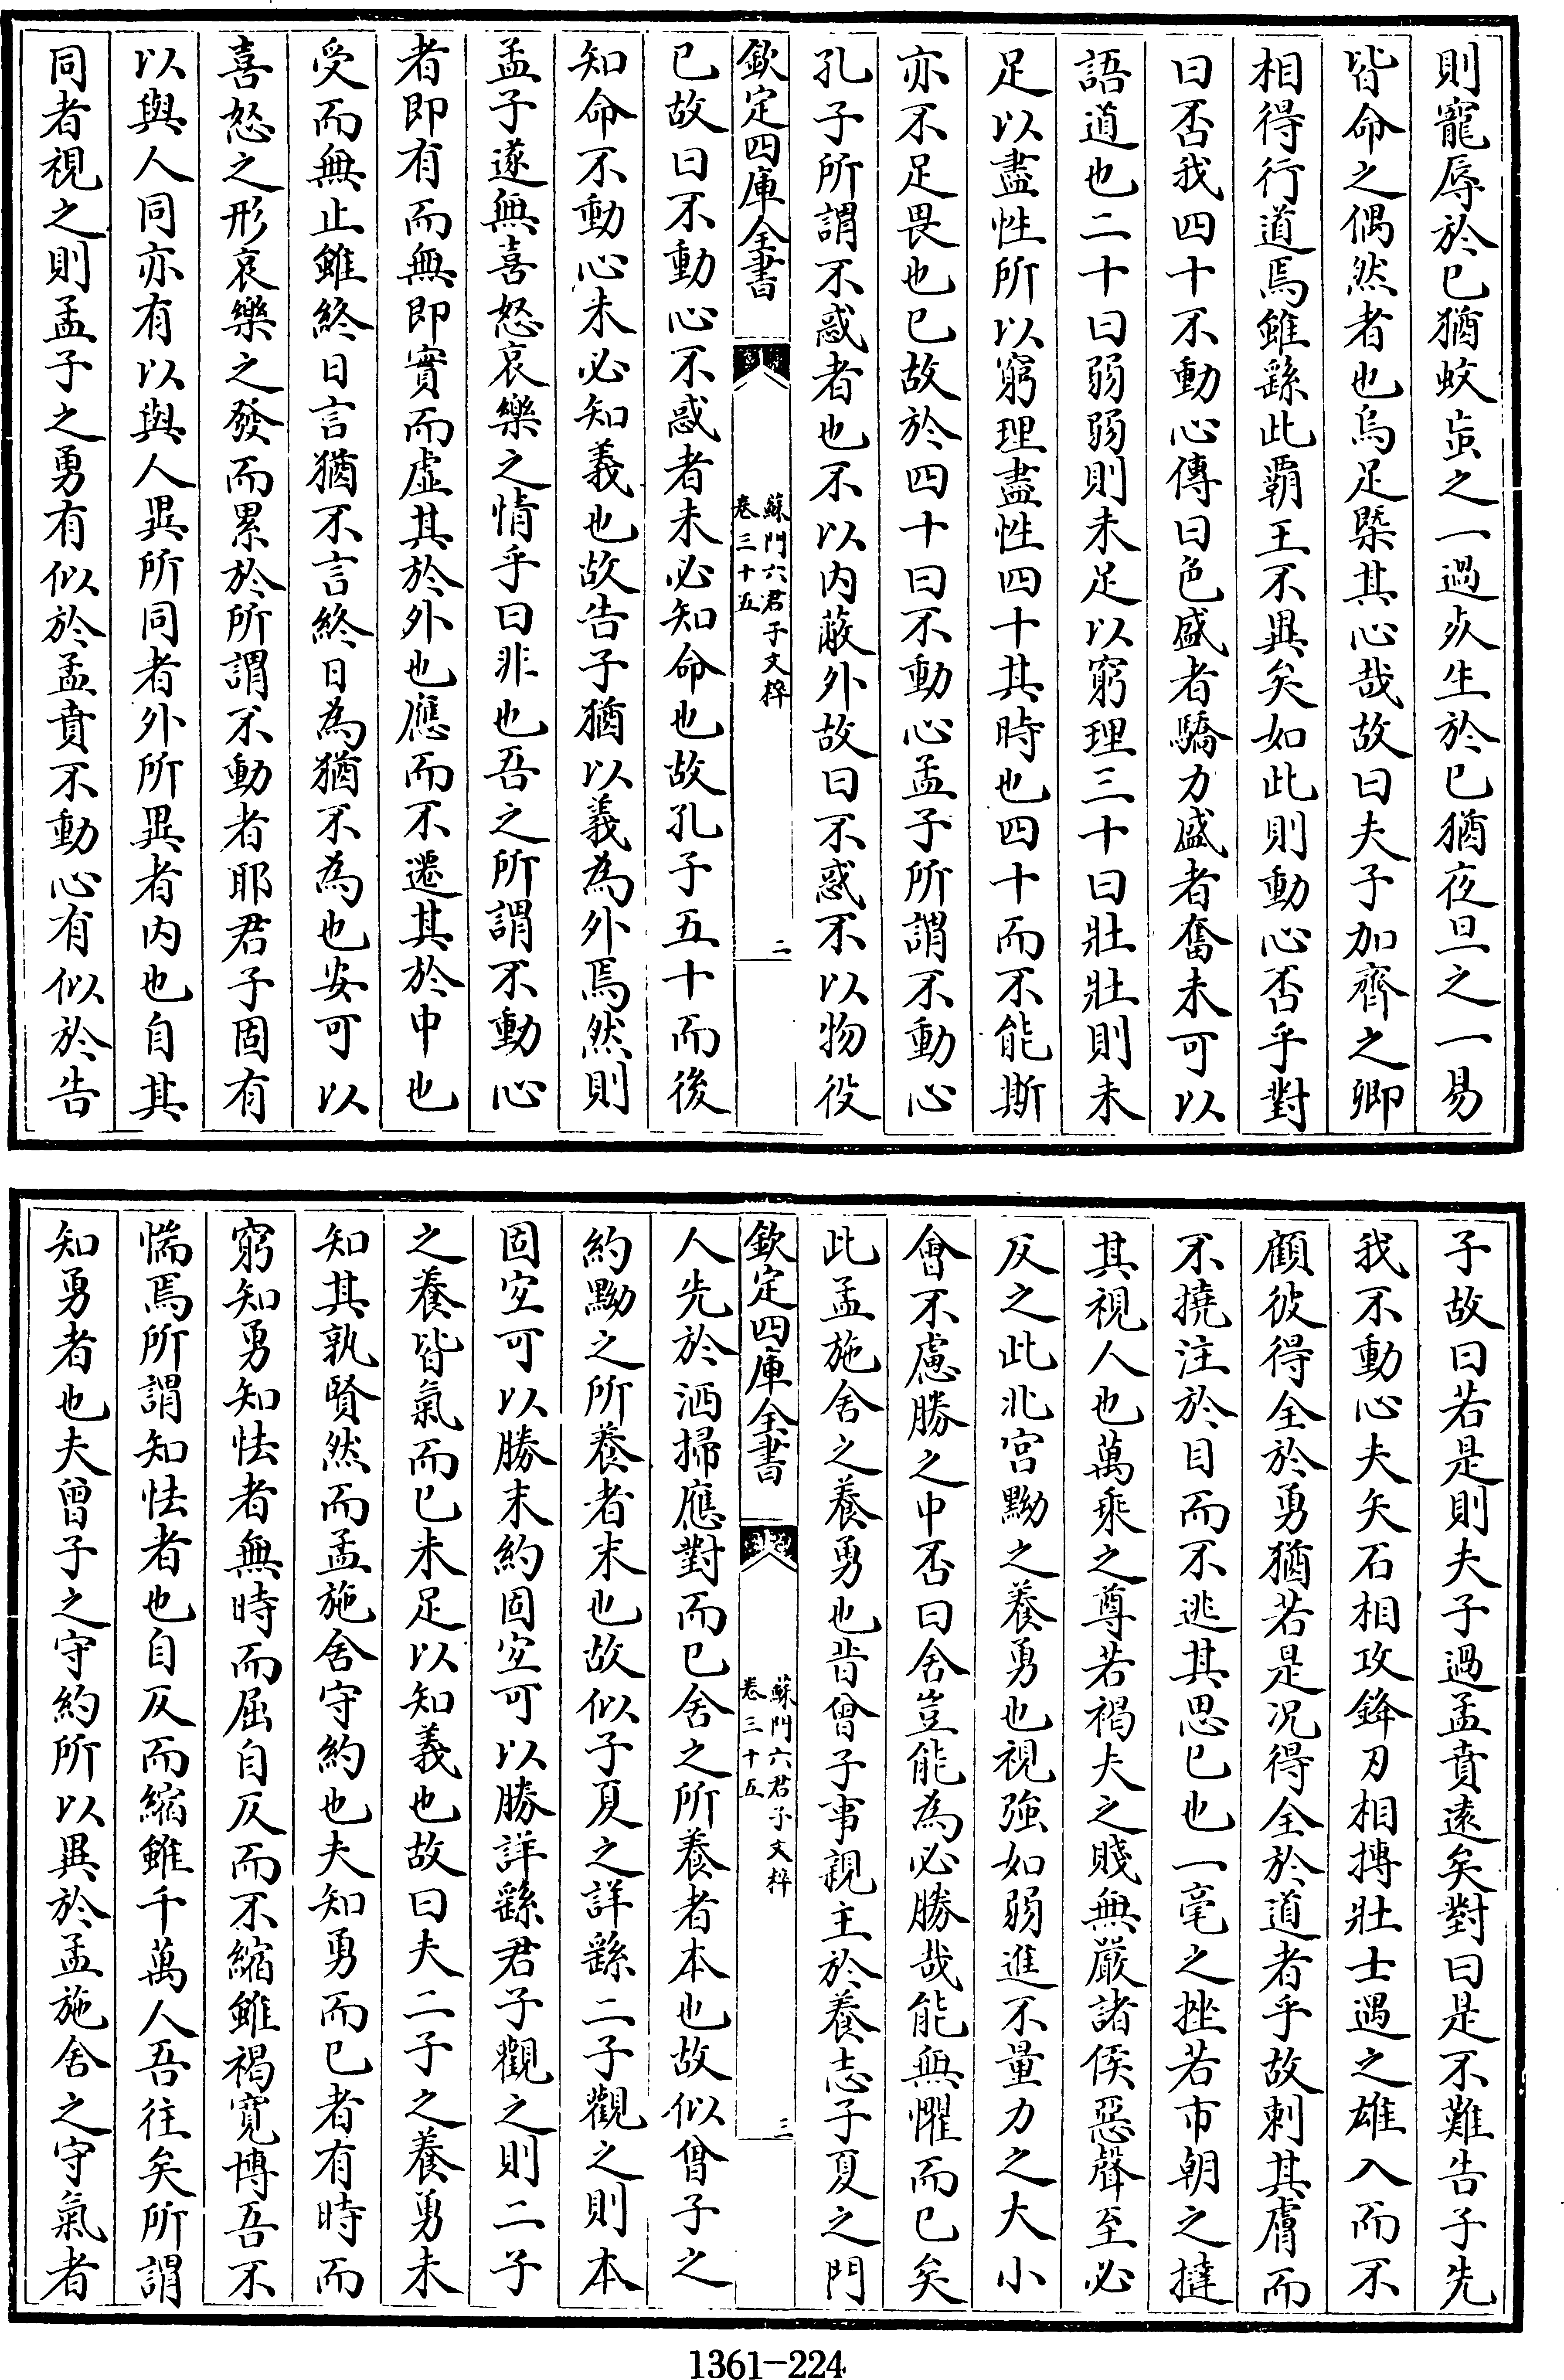 則寵辱於已猶蚊䖟之一過死生於已猶夜旦之一易
皆命之偶然者也烏足槩其心哉故曰夫子加齊之卿
相得行道焉雖繇此霸王不異矣如此則動心否乎對
曰否我四十不動心傳曰色盛者驕力盛者奮未可以
語道也二十曰弱弱則未足以窮理三十曰壯壯則未
足以盡性所以窮理盡性四十其時也四十而不能斯
亦不足畏也已故於四十曰不動心孟子所謂不動心
孔子所謂不惑者也不以内蔽外故曰不惑不以物役
欽定四庫全書
蘇門六君子文粹
卷三十五
二
已故曰不動心不惑者未必知命也故孔子五十而後
知命不動心未必知義也故告子猶以義為外焉然則
孟子遂無喜怒哀樂之情乎曰非也吾之所謂不動心
者即有而無即實而虛其於外也應而不遷其於中也
受而無止雖終日言猶不言終日為猶不為也安可以
喜怒之形哀樂之發而累於所謂不動者耶君子固有
以與人同亦有以與人異所同者外所異者内也自其
同者視之則孟子之勇有似於孟賁不動心有似於告
子故曰若是則夫子過孟賁遠矣對曰是不難告子先
我不動心夫矢石相攻鋒刃相搏壯士遇之雄入而不
顧彼得全於勇猶若是况得全於道者乎故刺其膚而
不撓注於目而不逃其思已也一毫之挫若市朝之撻
其視人也萬乘之尊若褐夫之賤無嚴諸侯惡聲至必
反之此北宫黝之養勇也視強如弱進不量力之大小
會不慮勝之中否曰舍豈能為必勝哉能無懼而已矣
此孟施舍之養勇也昔曾子事親主於養志子夏之門
欽定四庫全書
蘇門六君子文粹
卷三十五
三
人先於洒掃應對而已舍之所養者本也故似曾子之
約黝之所養者末也故似子夏之詳繇二子觀之則本
固宜可以勝末約固宜可以勝詳繇君子觀之則二子
之養皆氣而已未足以知義也故曰夫二子之養勇未
知其孰賢然而孟施舍守約也夫知勇而已者有時而
窮知勇知怯者無時而屈自反而不縮雖褐寛博吾不
惴焉所謂知怯者也自反而縮雖千萬人吾往矣所謂
知勇者也夫曾子之守約所以異於孟施舍之守氣者
1361-224